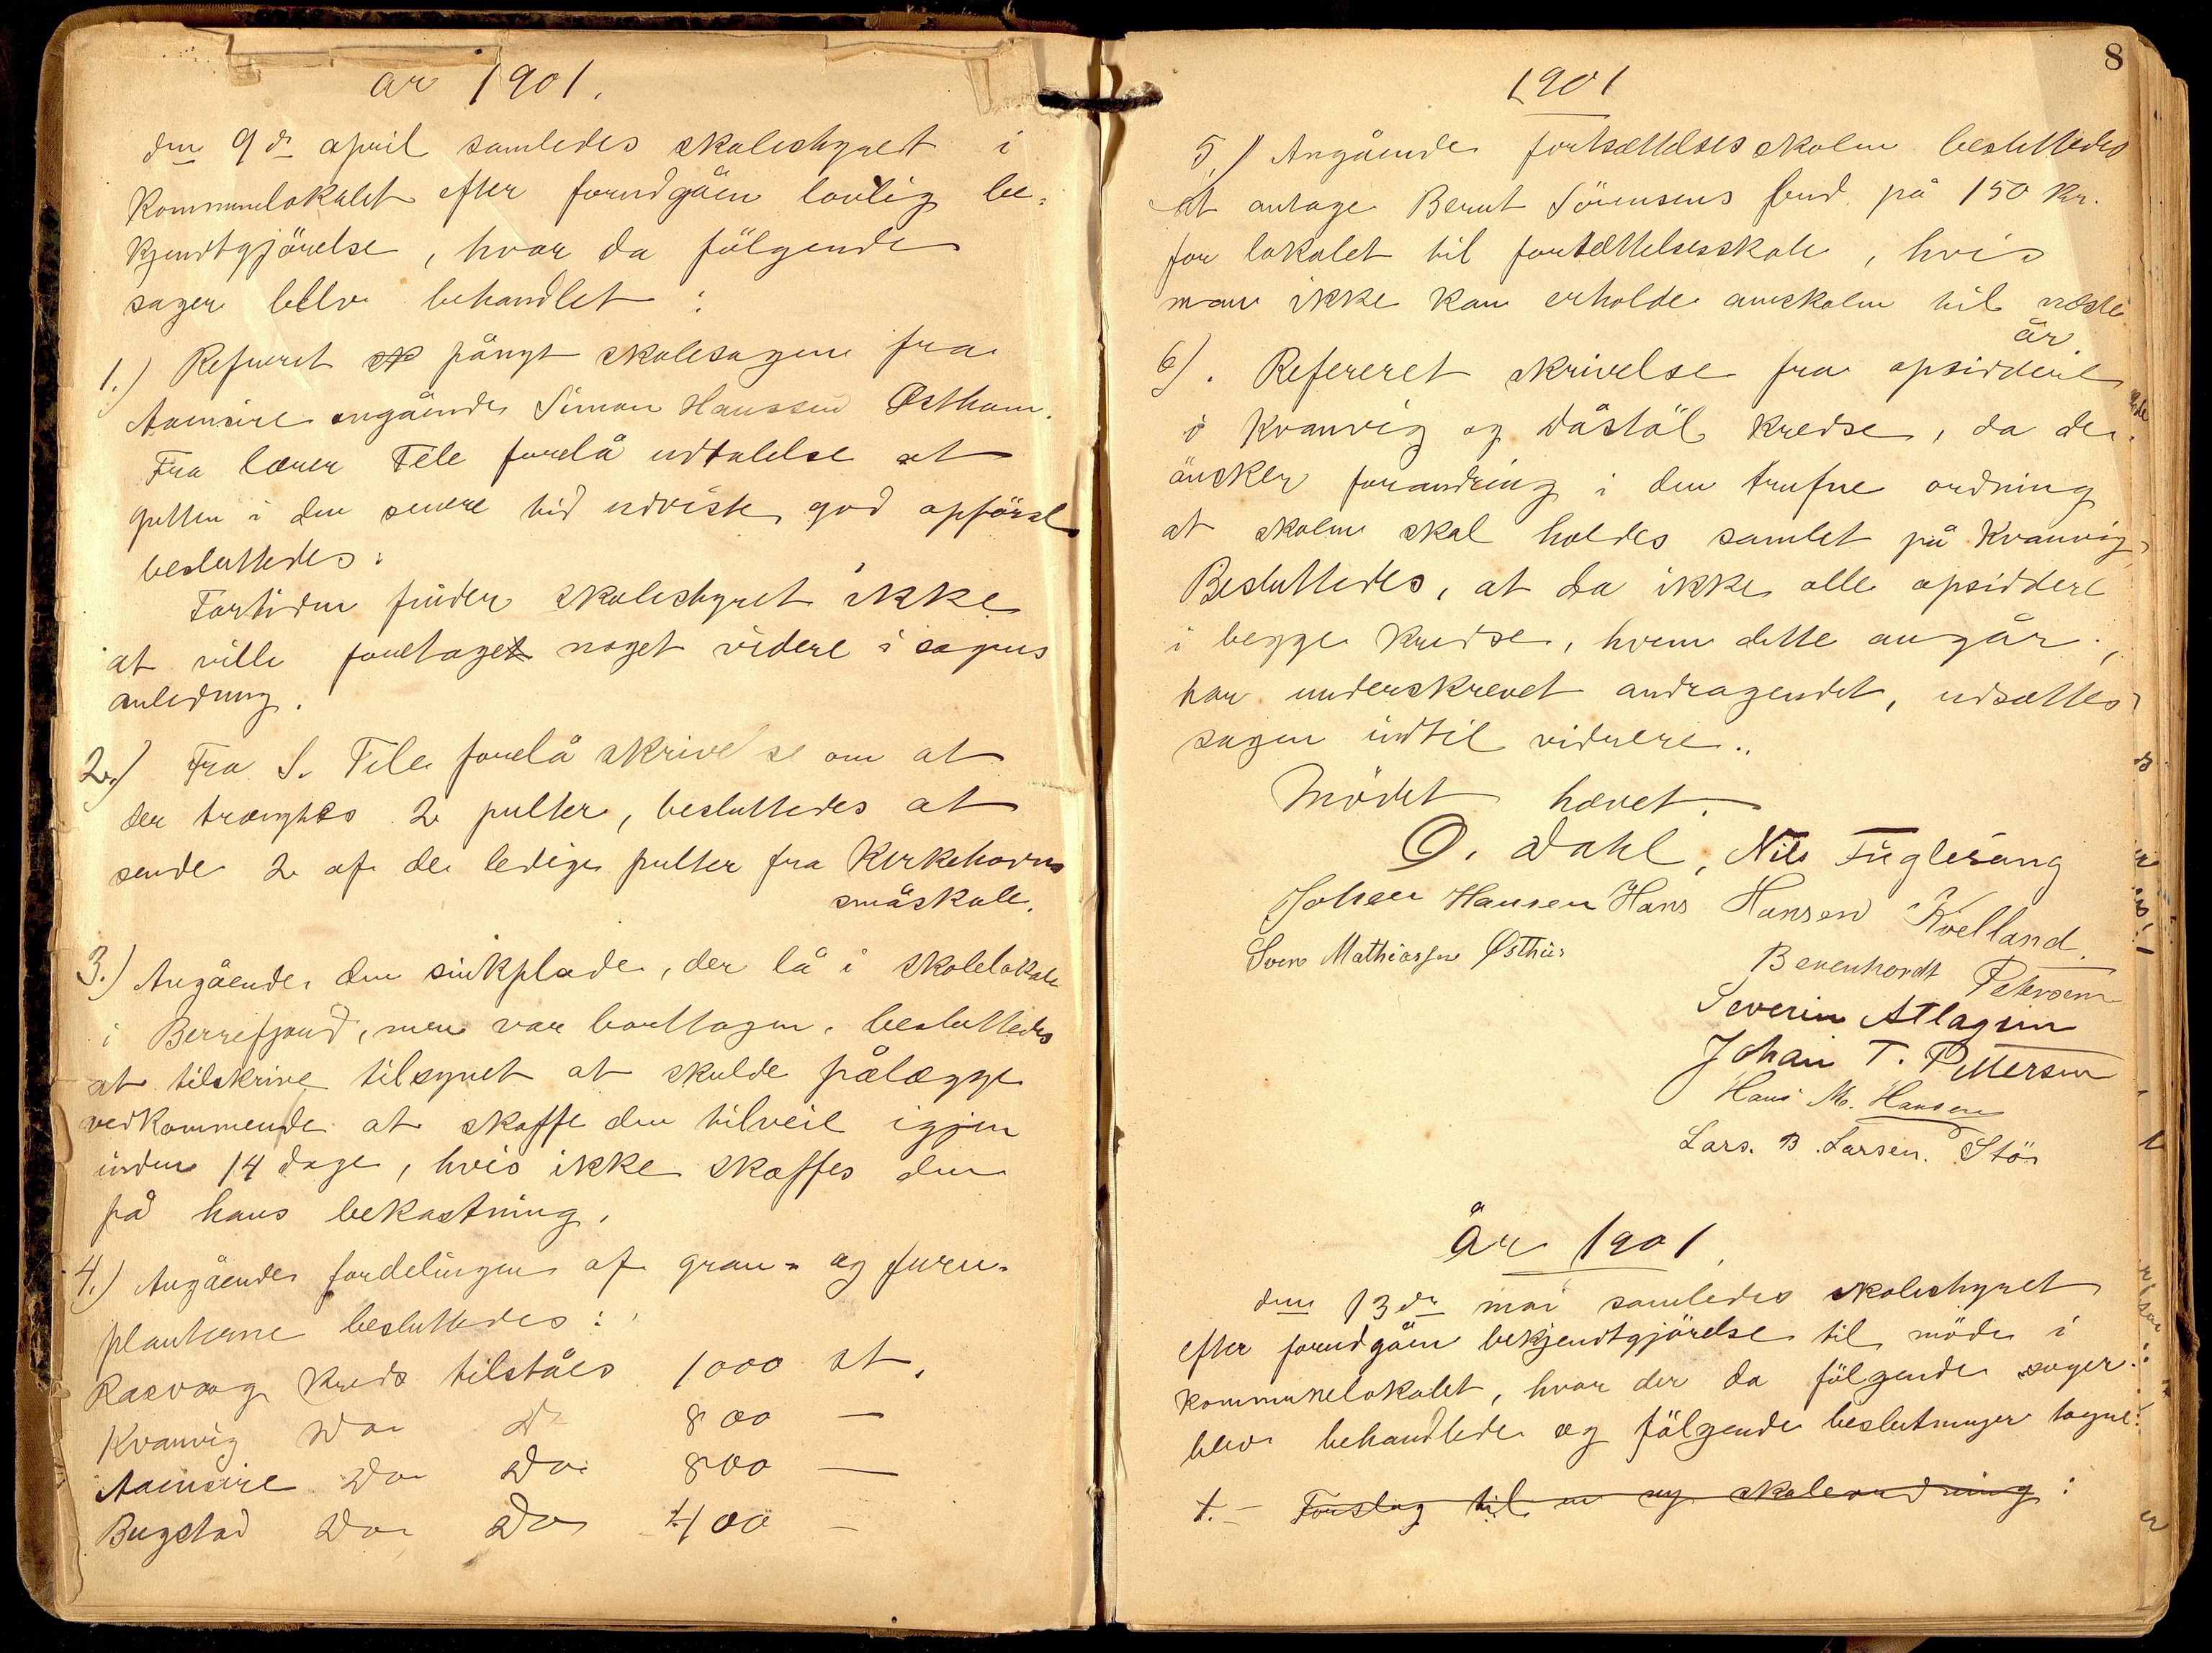 år 1901.
den 9de april samledes skolestyret i
Kommunelokalet efter forudgåen lovlig be=
kjendtgjörelse, hvor da fölgende
sager blev behandlet:
1.) Refereret sk pångt skolesagen fra
Aamsire angående Simon Hanssen Østham.
Fra lærer Tele forelå udtalelse at
gutten i den senere tid udviste god opförsel
besluttedes:
Fortiden finder skolestyret ikke
at ville foretaget noget videre i sagens
anledning.
2.) Fra S. Tele forelå skrivelse om at
der trængtes 2 pulter, besluttedes at
sende 2 af de ledige pulter fra Kirkehavns
småskole.
3.) Angående den sinkplade, der lå i skolelokale
i Berrefjord, men var borttagen, besluttedes
at tilskrive tilsynet at skulde pålægge
vedkommende at skaffe den tilveie igjen
inden 14 dage, hvis ikke skaffes den
på hans bekostning.
4.) Angående fordelingen af gran- og furu-
planterne besluttedes:
Rasvaag kreds tilståes 1000 st.
Kvanvig Do D 800 —
Aamsire Do Do 800 —
Bugstad Do Do 400 —
8
1901
5.) Angående fortsættelsesskolen besluttedes
at antage Bernt Sörensens bud på 150 kr.
for lokalet til fortsættelsesskole, hvis
man ikke kan erholde amskolen til næste
år.
6). Refereret skrivelse fra opsiddere
i Kvanvig og Dåstöl kredse, da de
önsker forandring i den trufne ordning
at skolen skal holdes samlet på Kvanvig,
Besluttedes, at da ikke alle opsiddere
i begge kredse, hvem dette angår,
har underskrevet andragendet, udsættes
sagen indtil videre..
Mödet hævet.
O. Dahl, Nils Fuglesang
Johan Hansen Hans Hansen Kvelland.
Sven Mathiassen Østhus
Berenhardt Petersen
Severin Atlagsen
Johan T. Pettersen
Hans M. Hansen
Lars. B. Larsen. Stö.
År 1901
den 13de mai samledes skolestyret
efter forudgåen bekjendtgjörelse til möde i
kommunelokalet, hvor der da fölgende sager
blev behandlede og fölgende beslutninger tagne:
1. – Forslag til en ny skoleordning: